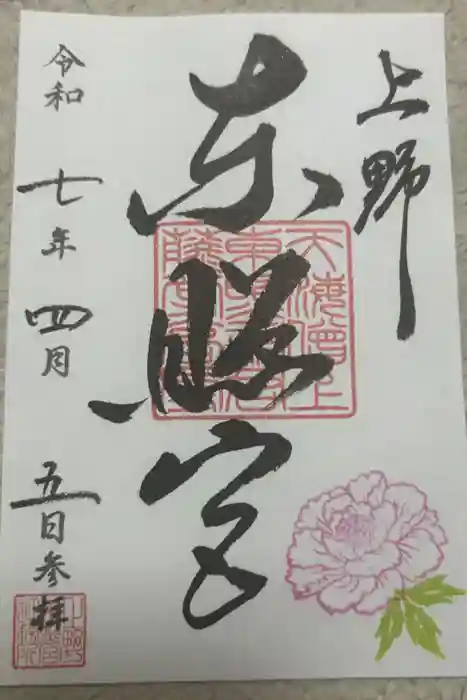 上野
東照宮
令和七年四月五日参拝